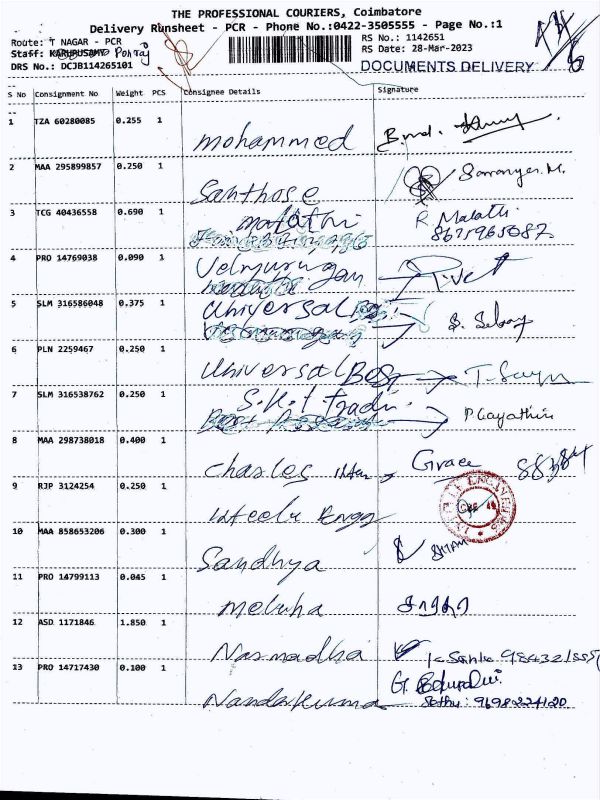 THE PROFESSIONAL COURIERS, Coimbatore
Delivery Runsheet - PCR - Phone No.:0422-3505555 - Page No.:1
Route: T NAGAR - PCR
RS No.: 1142651
Staff: KARUPUSAMY Ponraj
RS Date: 28-Mar-2023
DRS No.: DCJB114265101
DOCUMENTS DELIVERY
S No Consignment No Weight PCS Consignee Details Signature
1 TZA 60280085 0.255 1 mohammed
2 MAA 295899857 0.250 1 Santhose Saranya.M.
3 TCG 40436558 0.690 1 malathi R Malathi
8675965087
4 PRO 14769038 0.090 1 Velmurugan
5 SLM 316586048 0.375 1 universal
6 PLN 2259467 0.250 1 universal Best
7 SLM 316538762 0.250 1 S.K.T Tradi. P Gayathiri
8 MAA 298738018 0.400 1 Charles Grace
9 RJP 3124254 0.250 1
10 MAA 858653206 0.300 1 Sandhya
11 PRO 14799113 0.045 1 Meluha
12 ASD 1171846 1.850 1 Narmadha
13 PRO 14717430 0.100 1 Nandakuma Sethu: 9698224120